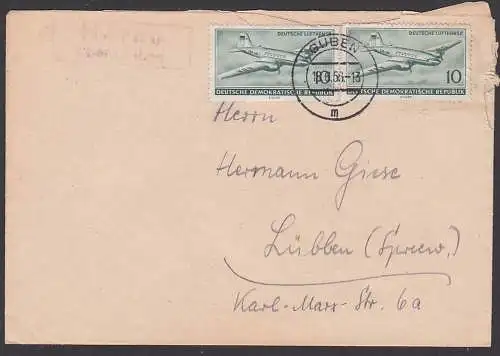 DEUTSCHE LUFTHANSA DEUTSCHE LUFTHANSA
GUBEN
10
DEUTSCHE DEMOKRATISCHE REPUBLIK DEUTSCHE DEMOKRATISCHE REPUBLIK
m
Herrn
Hermann Giese
Lübben (Spreew.)
Karl-Marx-Str. 6a